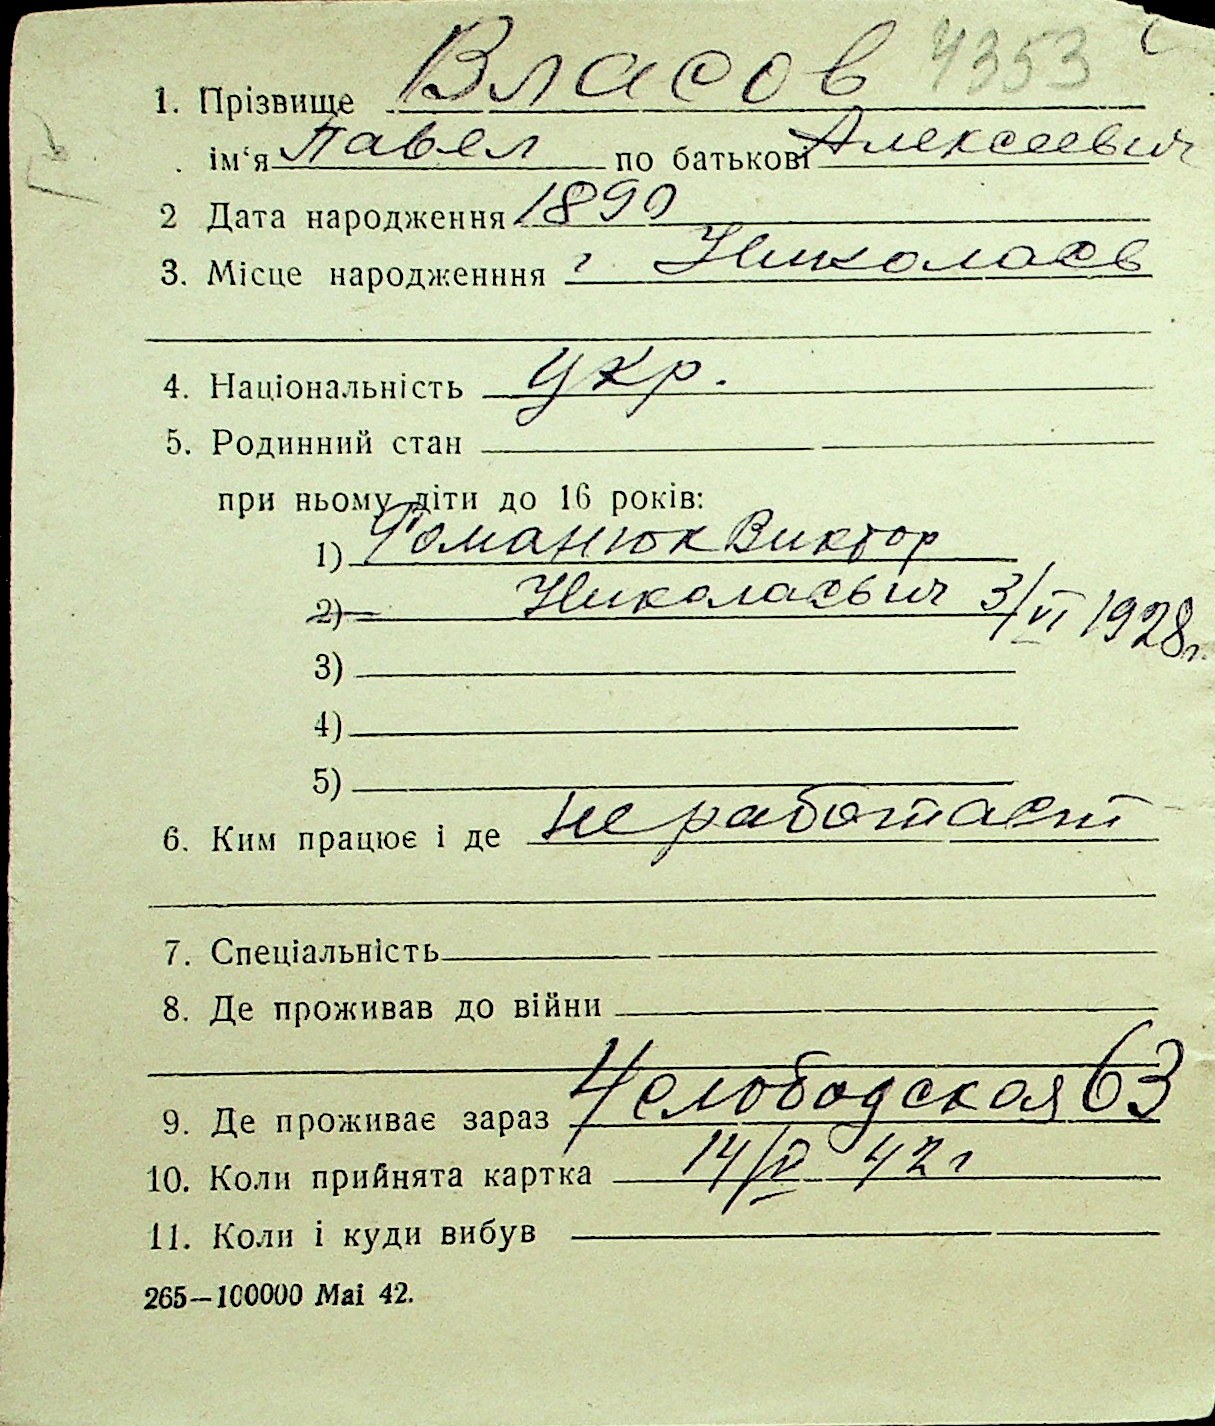 Власов 4353
1. Прізвище
ім‘я Павел по батькові Алексеевич
2 Дата народження 1890
3. Місце народженння г Николаев
4. Національність укр.
5. Родинний стан
при ньому діти до 16 років:
1) Романюк Виктор
2) Николаевич 3/VI 1928г.
3)
4)
5)
6. Ким працює і де не работает
7. Спеціальність
8. Де проживав до війни
9. Де проживає зараз 4 слободская 63
10. Коли прийнята картка 14/V 42 г
11. Коли і куди вибув
265—100000 Mai 42.